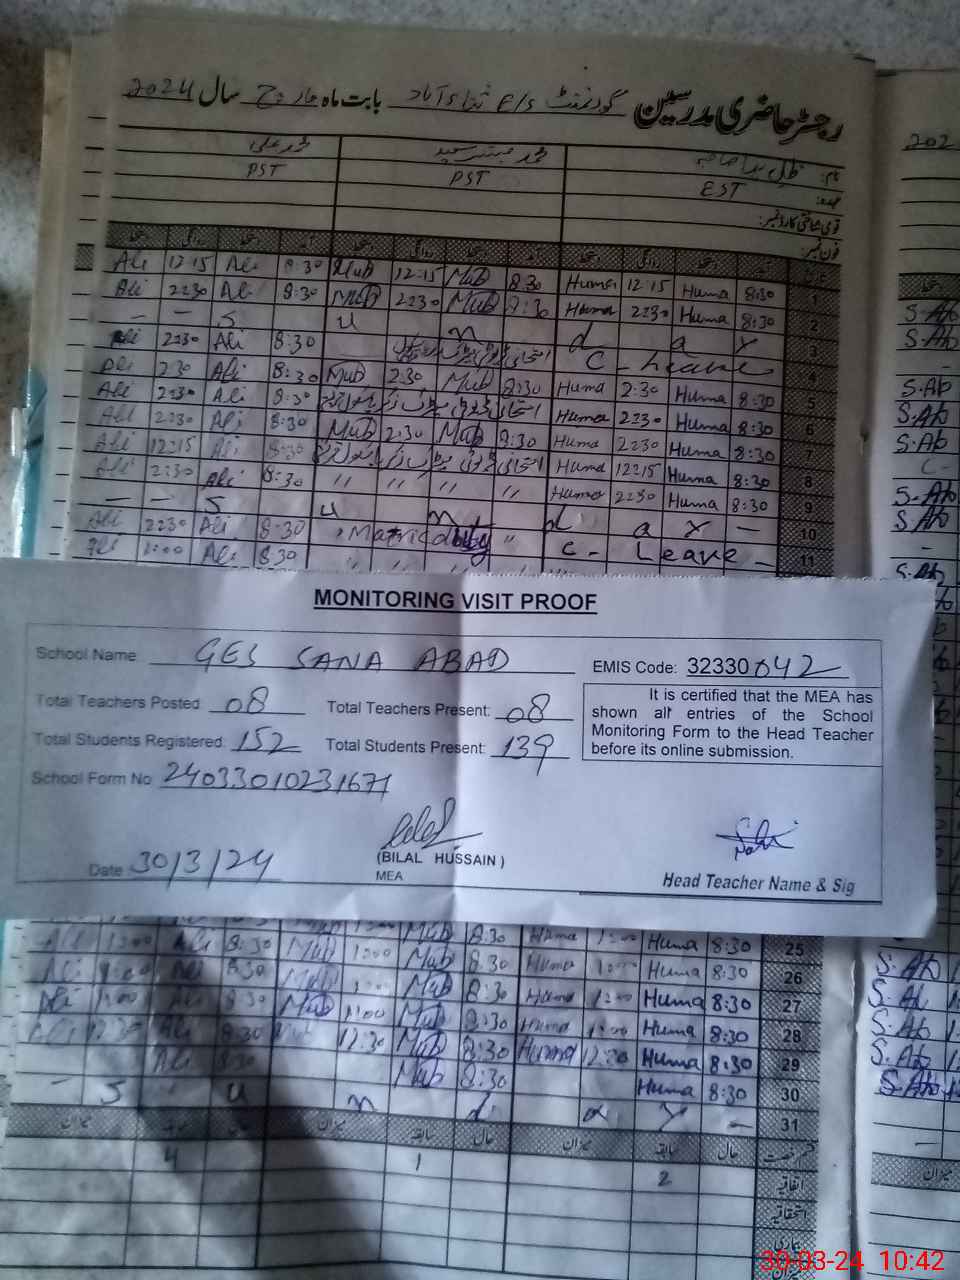 رجسٹر حاضری مدرسین گورنمنٹ E/S ثناء آباد بابت ماہ مارچ سال 2024
نام:
محمد علی
عہدہ: EST PST PST
قومی شناختی کارڈ نمبر:
فون نمبر:
Ali 12:15 Ali 8:30 Mub 12:15 Mub 8:30 Huma 12:15 Huma 8:30 1
Ali 2:30 Ali 8:30 Mub 2:30 Mub 8:30 Huma 2:30 Huma 8:30 2
— — S u n d a y 3
Ali 2:30 Ali 8:30 C - Leave 4
Ali 2:30 Ali 8:30 Mub 2:30 Mub 8:30 Huma 2:30 Huma 8:30 5
Ali 2:30 Ali 8:30 Huma 2:30 Huma 8:30 6
Ali 2:30 Ali 8:30 Mub 2:30 Mub 8:30 Huma 2:30 Huma 8:30 7
Ali 12:15 Ali 8:30 Huma 12:15 Huma 8:30 8
Ali 2:30 Ali 8:30 " " " " Huma 2:30 Huma 8:30 9
— — S u n d a y — 10
Ali 2:30 Ali 8:30 " Matric duty " C - Leave - 11
Ali 1:00 Ali 8:30 " "
MONITORING VISIT PROOF
School Name: GES SANA ABAD
EMIS Code: 32330042
Total Teachers Posted 08 Total Teachers Present: 08
Total Students Registered: 152 Total Students Present: 139
School Form No 24033010231671
It is certified that the MEA has
shown all entries of the School
Monitoring Form to the Head Teacher
before its online submission.
Date 30/3/24
(BILAL HUSSAIN)
MEA
Head Teacher Name & Sig
Ali 1:00 Ali 8:30 Mub 1:00 Mub 8:30 Huma 1:00 Huma 8:30 25
Ali 1:00 Ali 8:30 Mub 1:00 Mub 8:30 Huma 1:00 Huma 8:30 26
Ali 1:00 Ali 8:30 Mub 1:00 Mub 8:30 Huma 1:00 Huma 8:30 27
Ali 12:30 Ali 8:30 Mub 12:30 Mub 8:30 Huma 1:00 Huma 8:30 28
Ali 8:30 Mub 8:30 Huma 12:30 Huma 8:30 29
Huma 8:30 30
— S u n d a y — 31
میزان سابقہ حال میزان سابقہ حال میزان سابقہ حال قسم رخصت
4 1 2 اتفاقیہ
استحقاقیہ
بیماری
میزان
202
S.Ab
S.Ab
-
S.Ab
S.Ab
S.Ab
C-
S.Ab
S.Ab
-
S.Ab
S.Ab
S.Ab
S.Ab
S.Ab
S.Ab
—
میزان
30-03-24 10:42